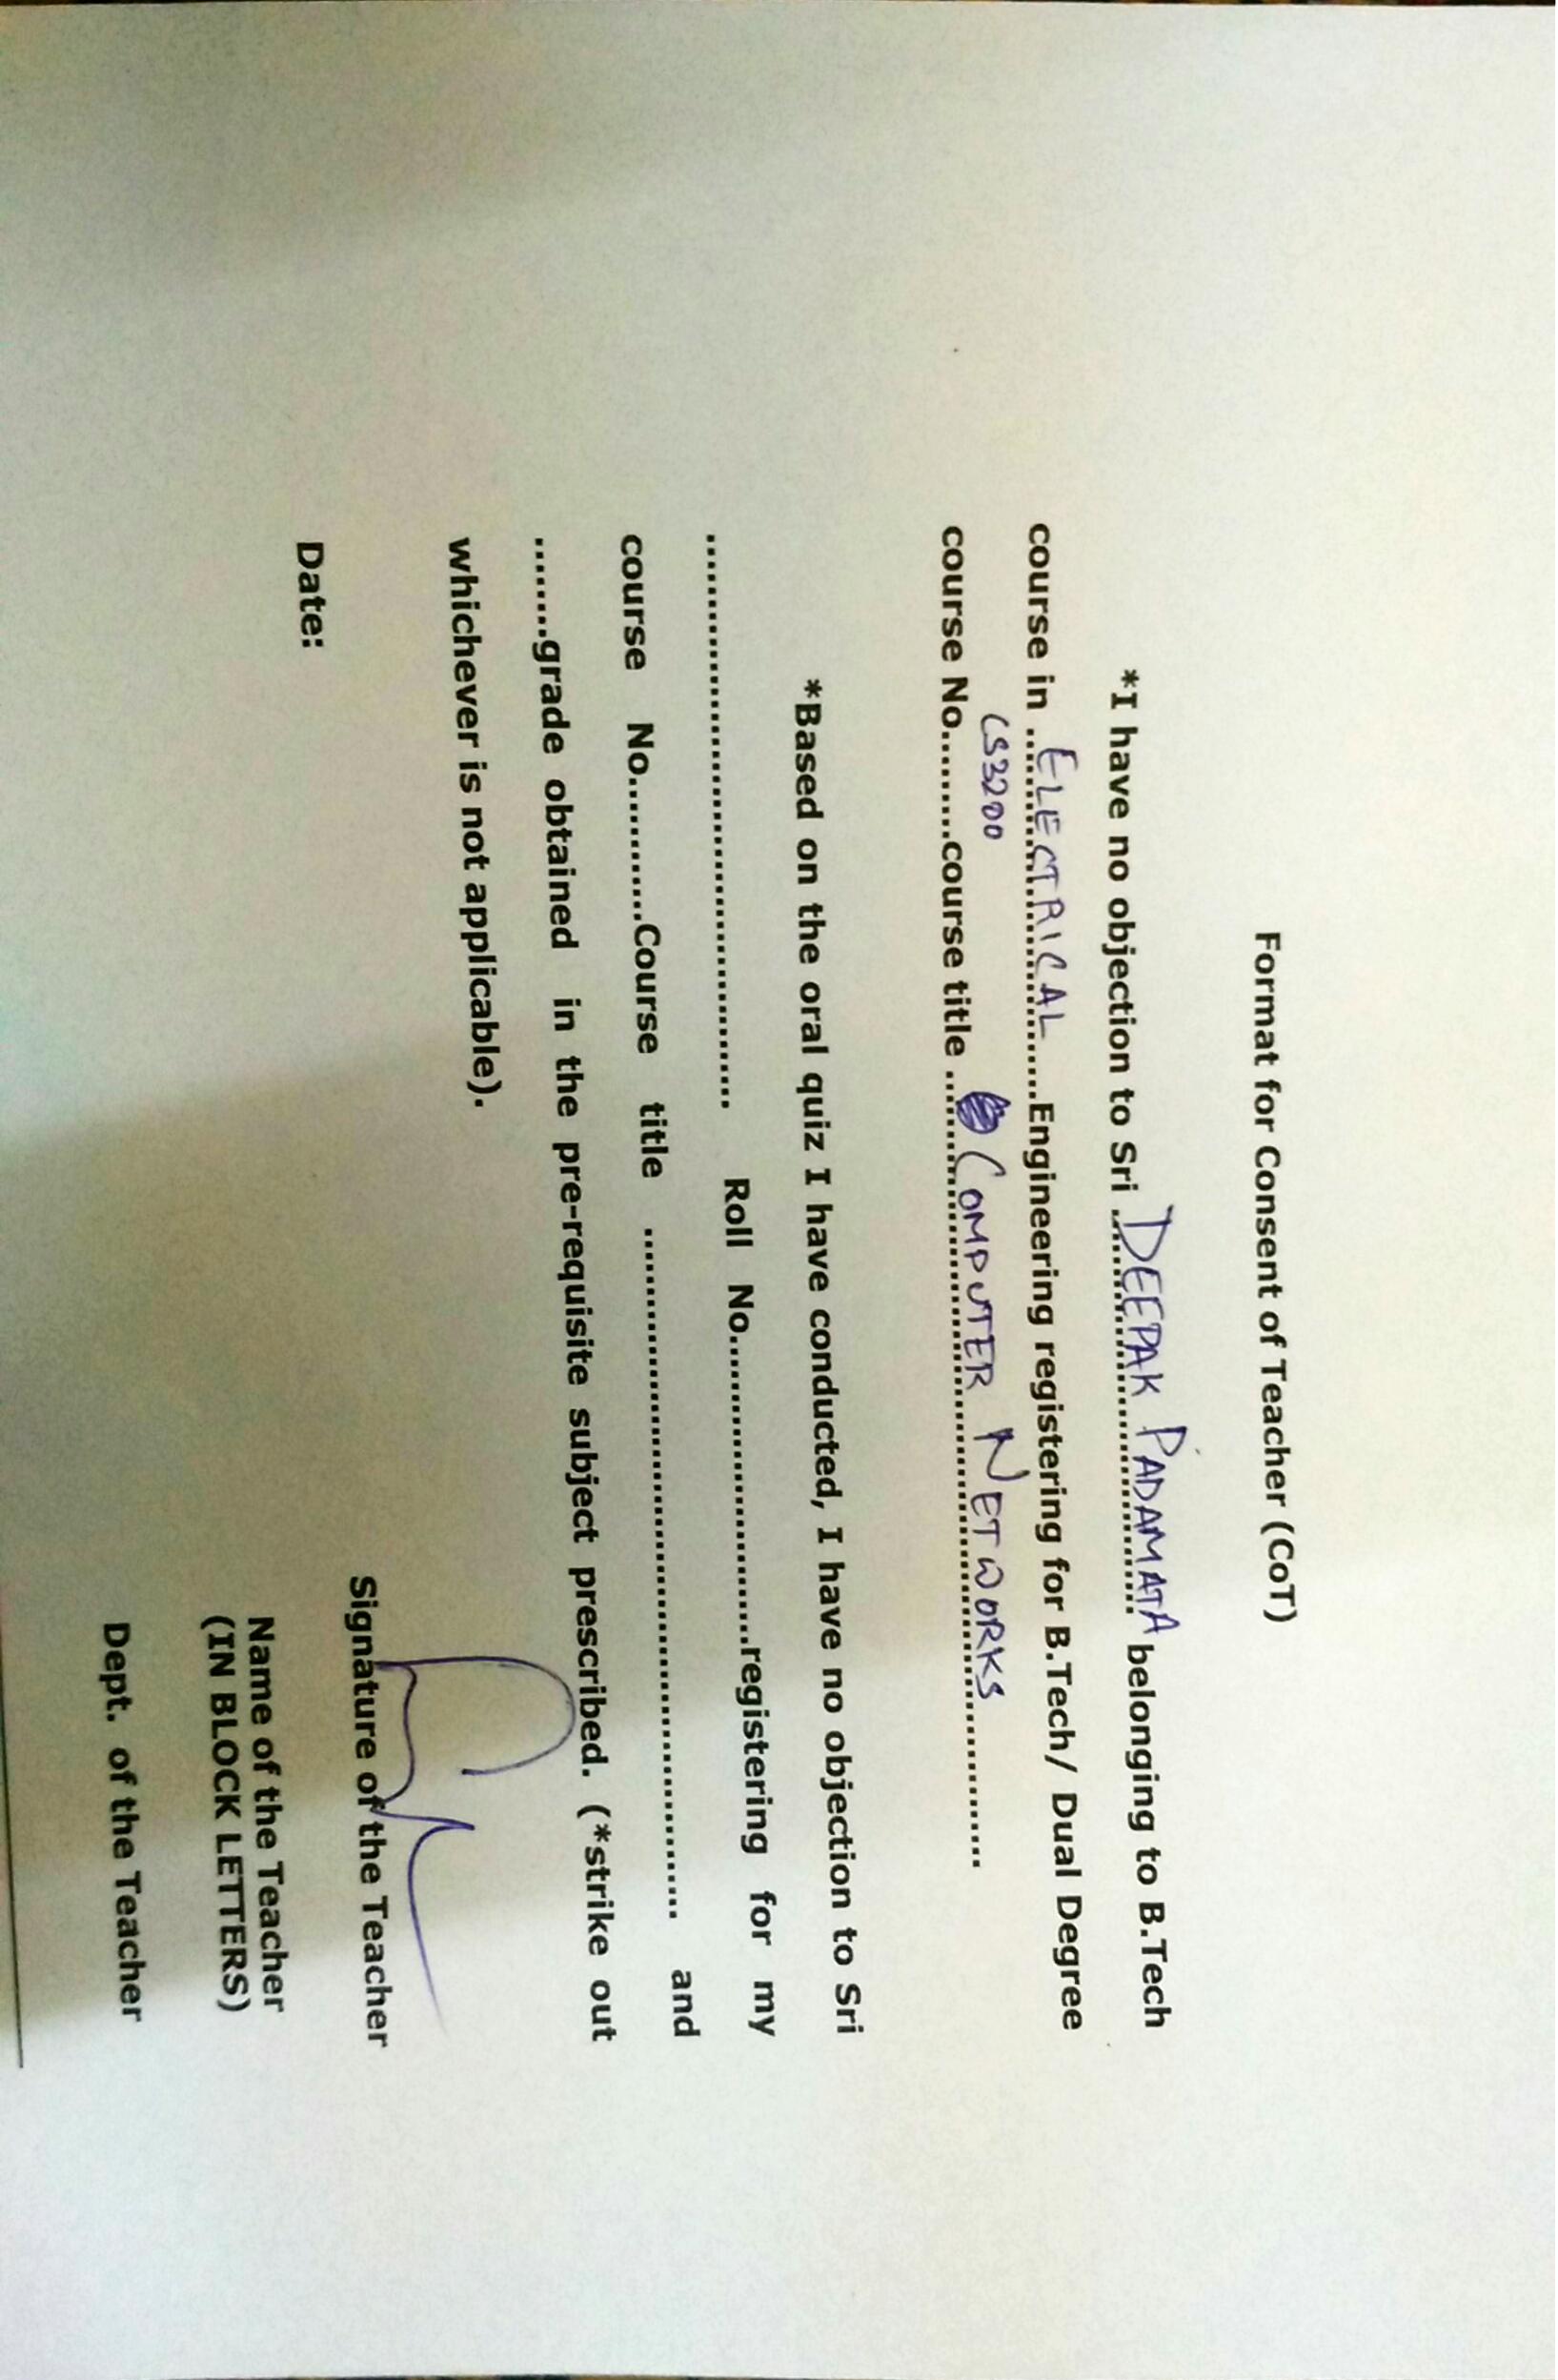 Format for Consent of Teacher (CoT)
*I have no objection to Sri ..DEEPAK PADAMATA.. belonging to B.Tech
course in ....ELECTRICAL....Engineering registering for B.Tech/ Dual Degree
CS3200
course No.........course title ....COMPUTER NETWORKS....................
*Based on the oral quiz I have conducted, I have no objection to Sri
........................................................ Roll No..............................registering for my
course No.............Course title .................................................................. and
........grade obtained in the pre-requisite subject prescribed. (*strike out
whichever is not applicable).
Signature of the Teacher
Date:
Name of the Teacher
(IN BLOCK LETTERS)
Dept. of the Teacher